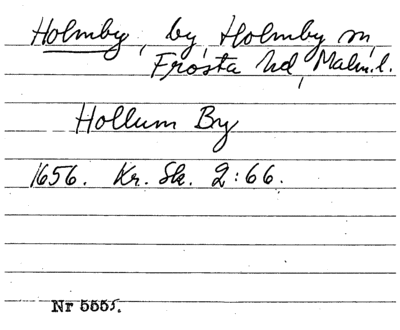 Holmby, by, Holmby sn,
Frosta hd, Malm.l.
Hollum By
1656. Kr. Sk. 2:66.
Nr 5555.